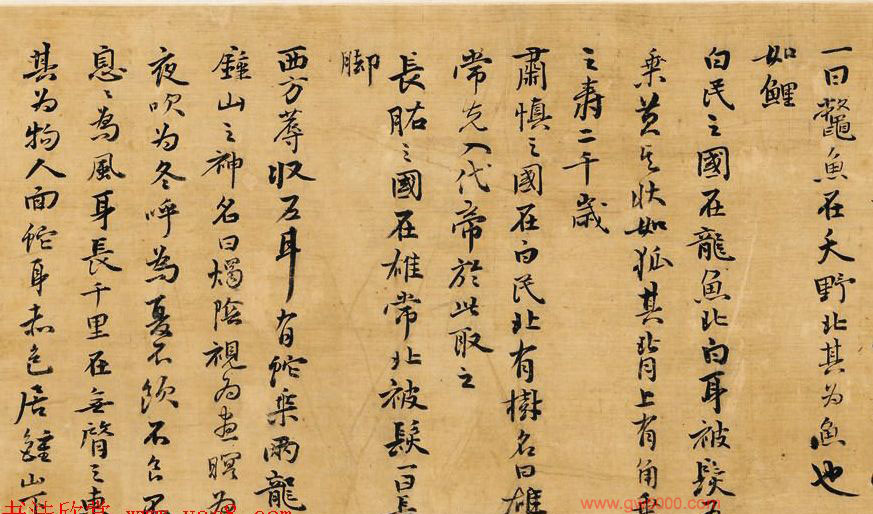 一曰鼈魚在夭野北其為魚也
如鯉
白民之國在龍魚北白身被髮
乘黃其狀如狐其背上有角乘
之壽二千歲
肅慎之國在白民北有樹名曰雄
常先入代帝於此取之
長股之國在雄常北被髮一曰長
脚
西方蓐收左耳有蛇乘兩龍
鍾山之神名曰燭陰視為晝瞑為
夜吹為冬呼為夏不飲不食不
息〻為風身長千里在無䏿之東
其為物人面蛇身赤色居鍾山下